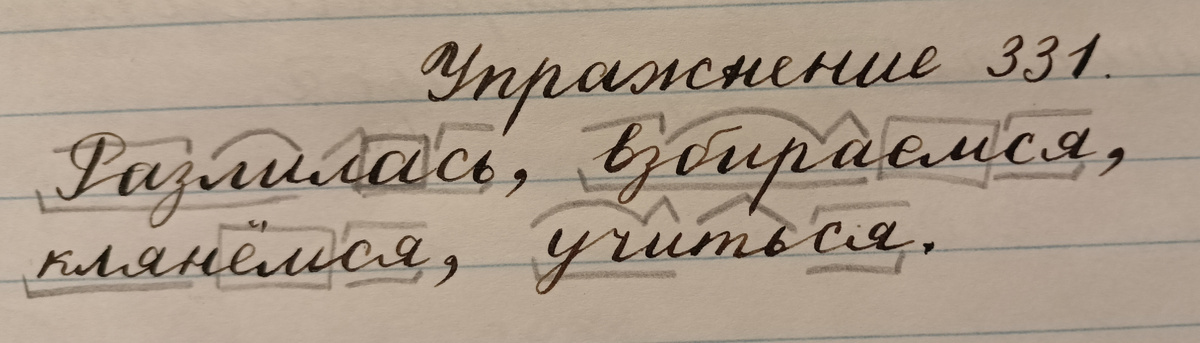 Упражнение 331.
Разлилась, взбираемся,
клянёмся, учиться.